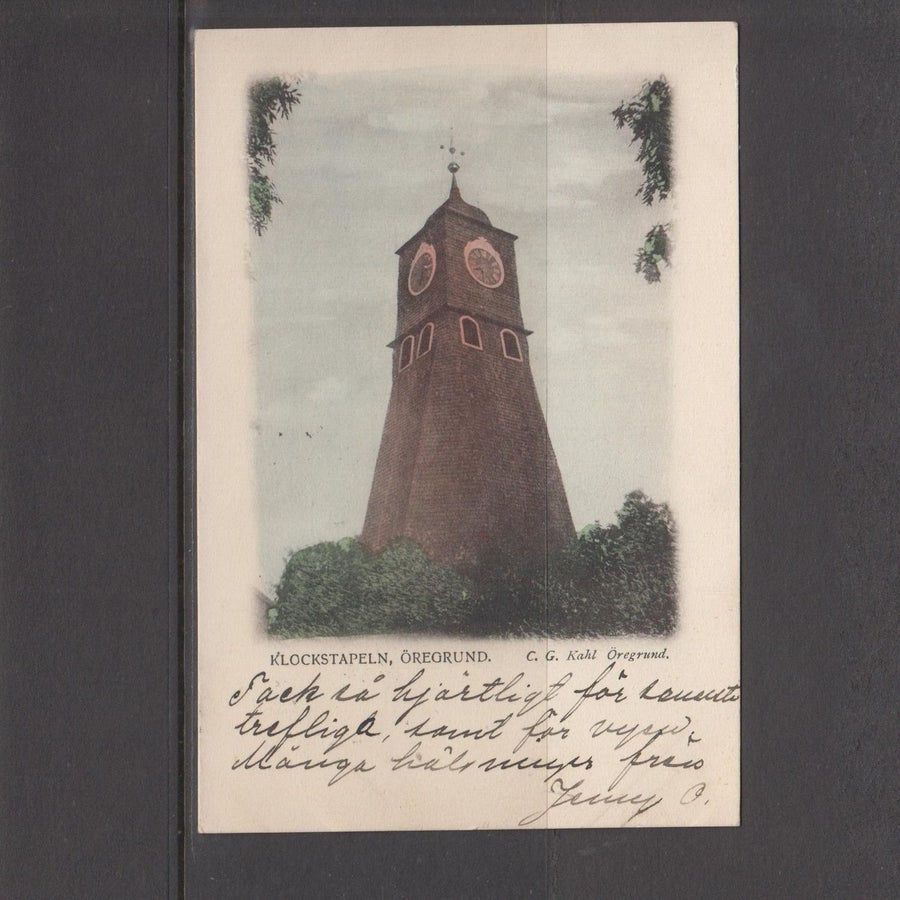 KLOCKSTAPELN, ÖREGRUND. C. G. Kahl Öregrund.
Tack så hjärtligt för senaste
trefliga, samt för vyen.
Många hälsningar från
Jenny O.